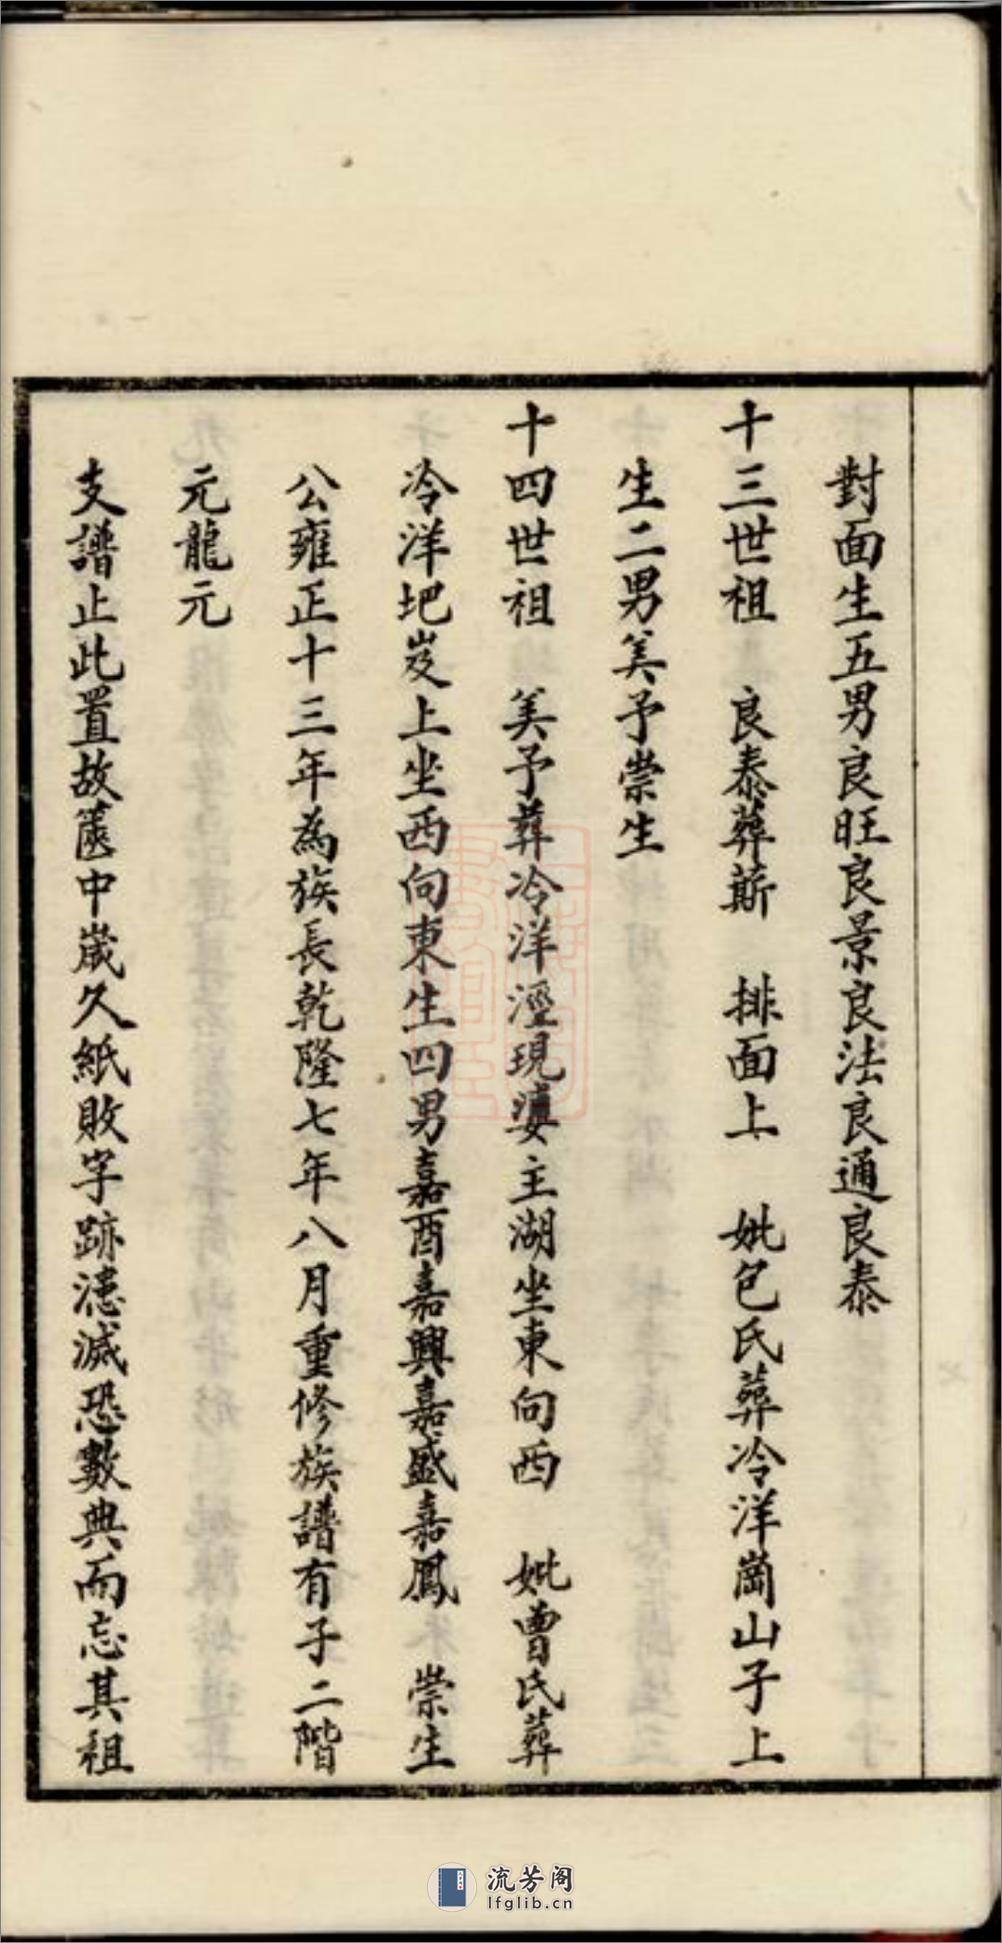 對面生五男良旺良景良法良通良泰
十三世祖 良泰葬蕲 排面上 妣包氏葬冷洋崗山子上
生二男美予崇生
十四世祖 美予葬冷洋溼現婆主湖坐東向西 妣曹氏葬
冷洋圯岌上坐西向東生四男嘉酉嘉興嘉盛嘉鳳 崇生
公雍正十三年為族長乾隆七年八月重修族譜有子二階
元龍元
支譜止此置故篋中歲久紙敗字跡漶滅恐數典而忘其祖
流芳阁
lfglib.cn